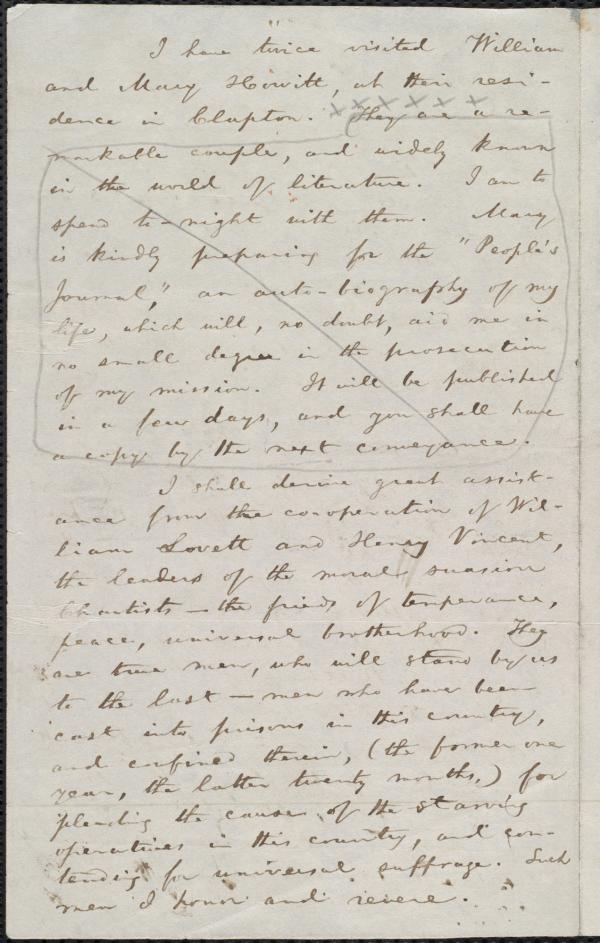 I have twice visited William
and Mary Howitt, at their resi-
dence in Clapton. They are a re-
markable couple, and widely known
in the world of literature. I am to
spend to-night with them. Mary
is kindly preparing for the "People's
Journal," an auto-biography of my
life, which will, no doubt, aid me in
no small degree in the prosecution
of my mission. It will be published
in a few days, and you shall have
a copy by the next conveyance.
I shall derive great assist-
ance from the co-operation of Wil-
liam Lovett and Henry Vincent,
the leaders of the moral suasion
Chartists — the friends of temperance,
peace, universal brotherhood. They
are true men, who will stand by us
to the last — men who have been
cast into prisons in this country,
and confined therein, (the former one
year, the latter twenty months,) for
pleading the causes of the starving
operatives in this country, and con-
tending for universal suffrage. Such
men I honor and revere.